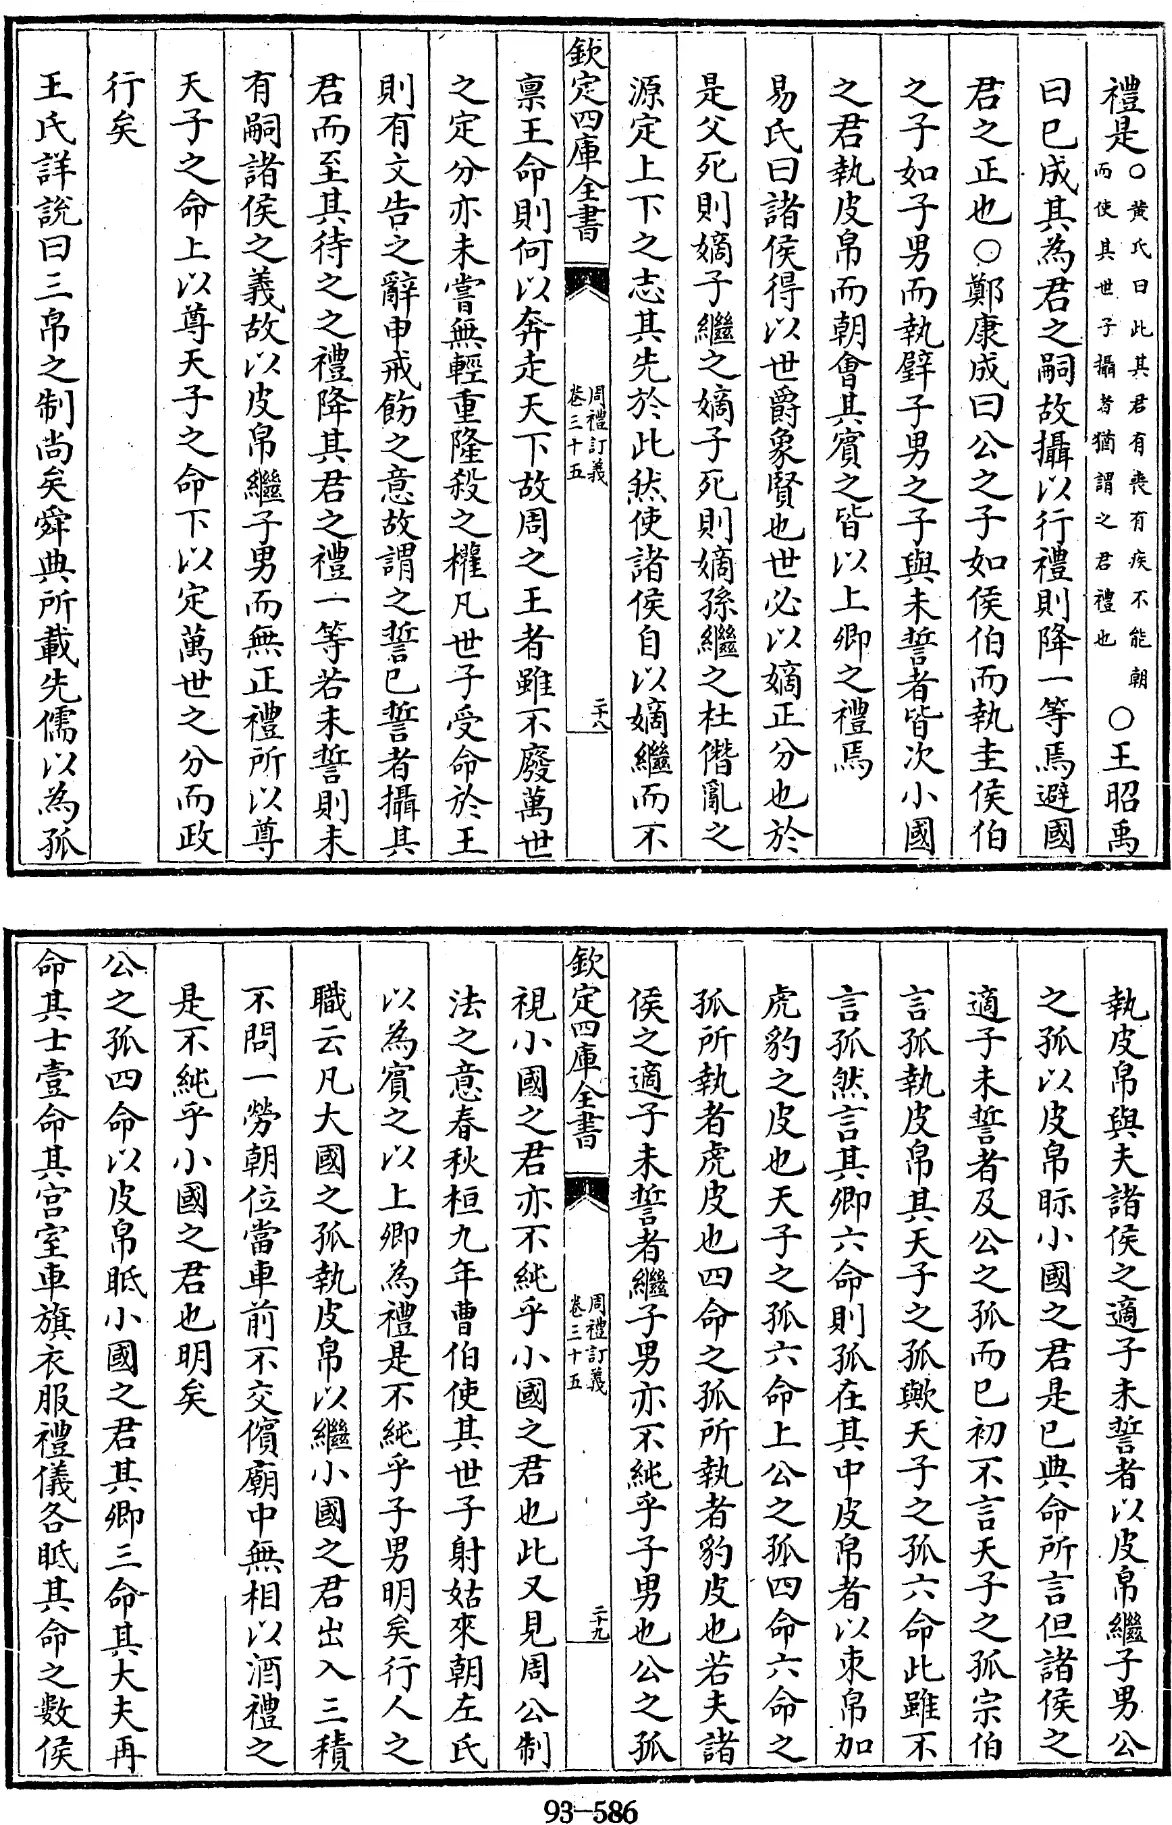 禮是○黄氏曰此其君有喪有疾不能朝而使其世子攝者猶謂之君禮也○王昭禹
曰已成其為君之嗣故攝以行禮則降一等焉避國
君之正也○鄭康成曰公之子如侯伯而執圭侯伯
之子如子男而執璧子男之子與未誓者皆次小國
之君執皮帛而朝會其賓之皆以上卿之禮焉
易氏曰諸侯得以世爵象賢也世必以嫡正分也於
是父死則嫡子繼之嫡子死則嫡孫繼之杜僭亂之
源定上下之志其先於此然使諸侯自以嫡繼而不
欽定四庫全書
周禮訂義
卷三十五
二十八
禀王命則何以奔走天下故周之王者雖不廢萬世
之定分亦未嘗無輕重隆殺之權凡世子受命於王
則有文告之辭申戒飭之意故謂之誓已誓者攝其
君而至其待之之禮降其君之禮一等若未誓則未
有嗣諸侯之義故以皮帛繼子男而無正禮所以尊
天子之命上以尊天子之命下以定萬世之分而政
行矣
王氏詳說曰三帛之制尚矣舜典所載先儒以為孤
執皮帛與夫諸侯之適子未誓者以皮帛繼子男公
之孤以皮帛眎小國之君是已典命所言但諸侯之
適子未誓者及公之孤而已初不言天子之孤宗伯
言孤執皮帛其天子之孤歟天子之孤六命此雖不
言孤然言其卿六命則孤在其中皮帛者以束帛加
虎豹之皮也天子之孤六命上公之孤四命六命之
孤所執者虎皮也四命之孤所執者豹皮也若夫諸
侯之適子未誓者繼子男亦不純乎子男也公之孤
欽定四庫全書
周禮訂義
卷三十五
二十九
視小國之君亦不純乎小國之君也此又見周公制
法之意春秋桓九年曹伯使其世子射姑來朝左氏
以為賓之以上卿為禮是不純乎子男明矣行人之
職云凡大國之孤執皮帛以繼小國之君出入三積
不問一勞朝位當車前不交儐廟中無相以酒禮之
是不純乎小國之君也明矣
公之孤四命以皮帛眡小國之君其卿三命其大夫再
命其士壹命其宫室車旗衣服禮儀各眡其命之數侯
93-586